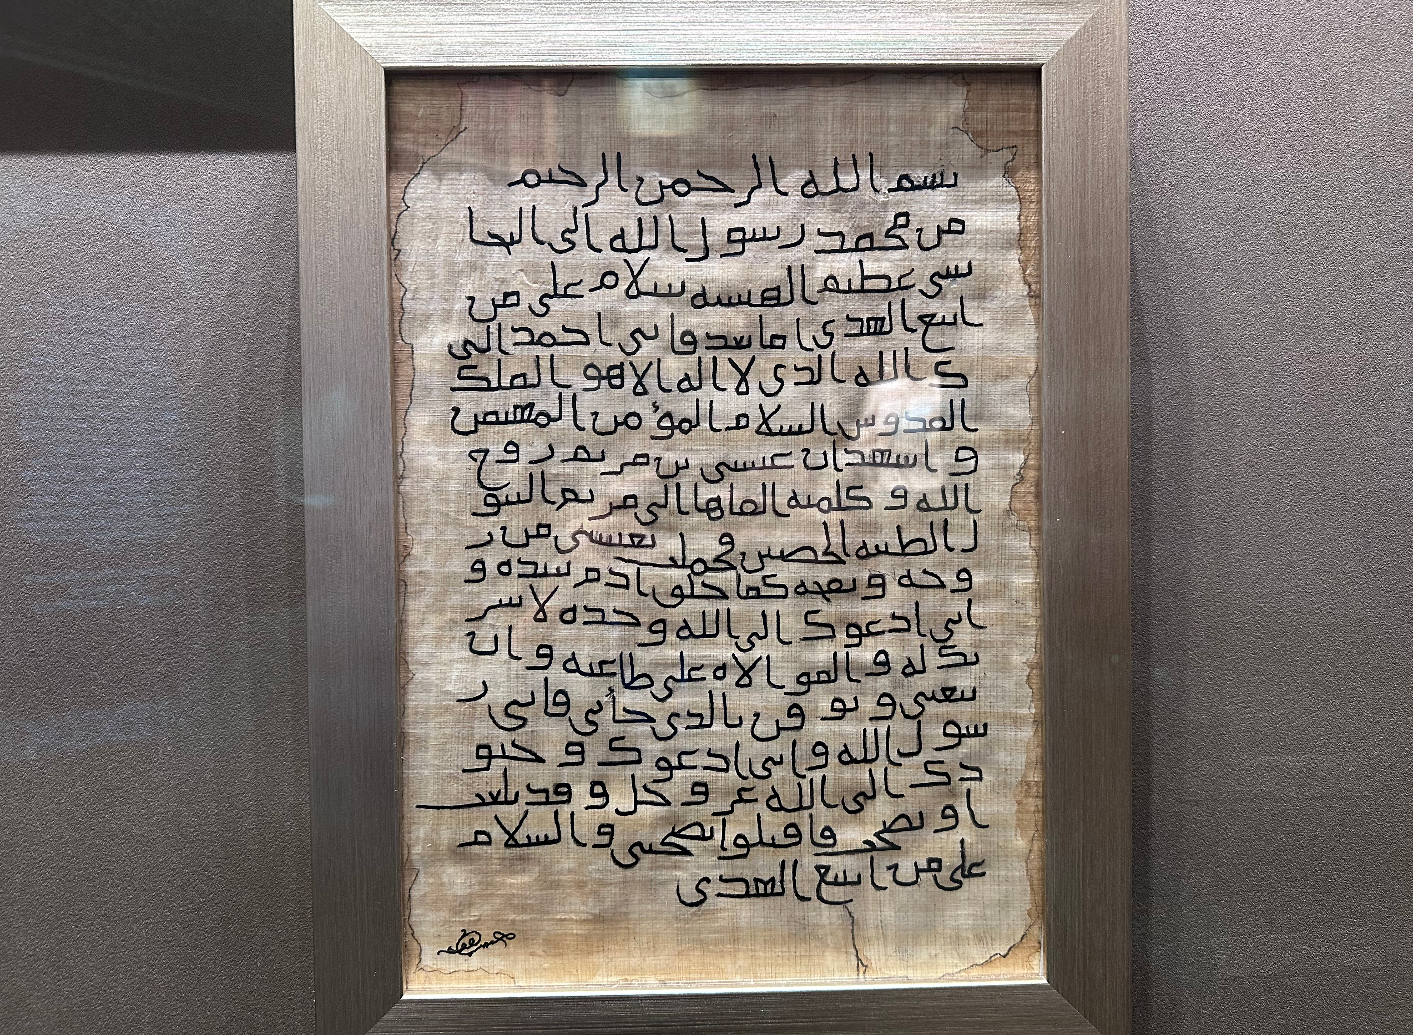 بسم الله الرحمن الرحيم
من محمد رسول الله الى النجا
سى عظيم الحبشه سلام على من
اتبع الهدى اما بعد فانى احمد الى
ك الله الذى لا اله الا هو الملك
القدوس السلام المؤمن المهيمن
و اشهد ان عيسى بن مريم روح
الله و كلمته القاها الى مريم البتو
ل الطيبه الحصينه فحملت بعيسى من ر
وحه و نفخه كما خلق ادم بيده و
انى ادعوك الى الله وحده لا شر
يك له و الموالاه على طاعته و ان
تتبعنى و توقن بالذى جأنى فانى ر
سول الله و انى ادعوك و جنو
دك الى الله عز و جل و قد بلغت
و نصحت فاقبلوا نصحتى و السلام
على من اتبع الهدى